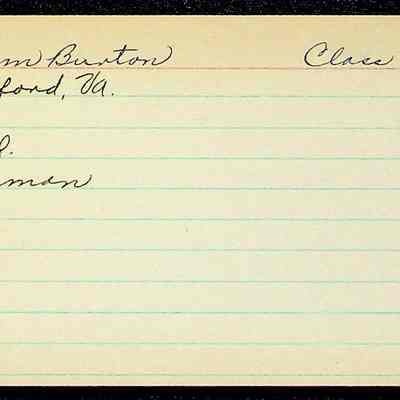 m Burton Class
ford, Va.
l.
man